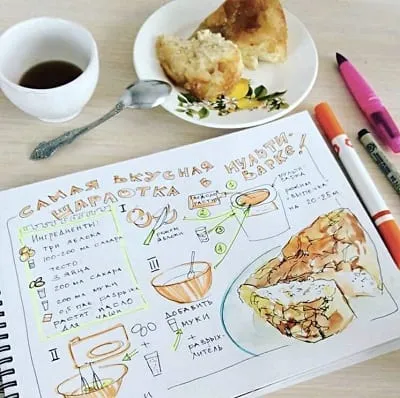 САМАЯ ВКУСНАЯ
ШАРЛОТКА в МУЛЬТИ-
ВАРКЕ!
ИНГРЕДИЕНТЫ:
ТРИ ЯБЛОКА
100-200 мл САХАРА
ТЕСТО
3 ЯЙЦА
200 мл САХАРА
200 мл МУКИ
0,5 ПАК РАЗРЫХЛ
РАСТИТ МАСЛО
ДЛЯ ЧАШИ
I
РЕЖЕМ
ЯБЛОКИ
1
2
3
РЕЖИМ
"ВЫПЕЧКА"
НА 20-25 М.
II
III
ДОБАВИТЬ
МУКИ
+
РАЗРЫХ-
ЛИТЕЛЬ